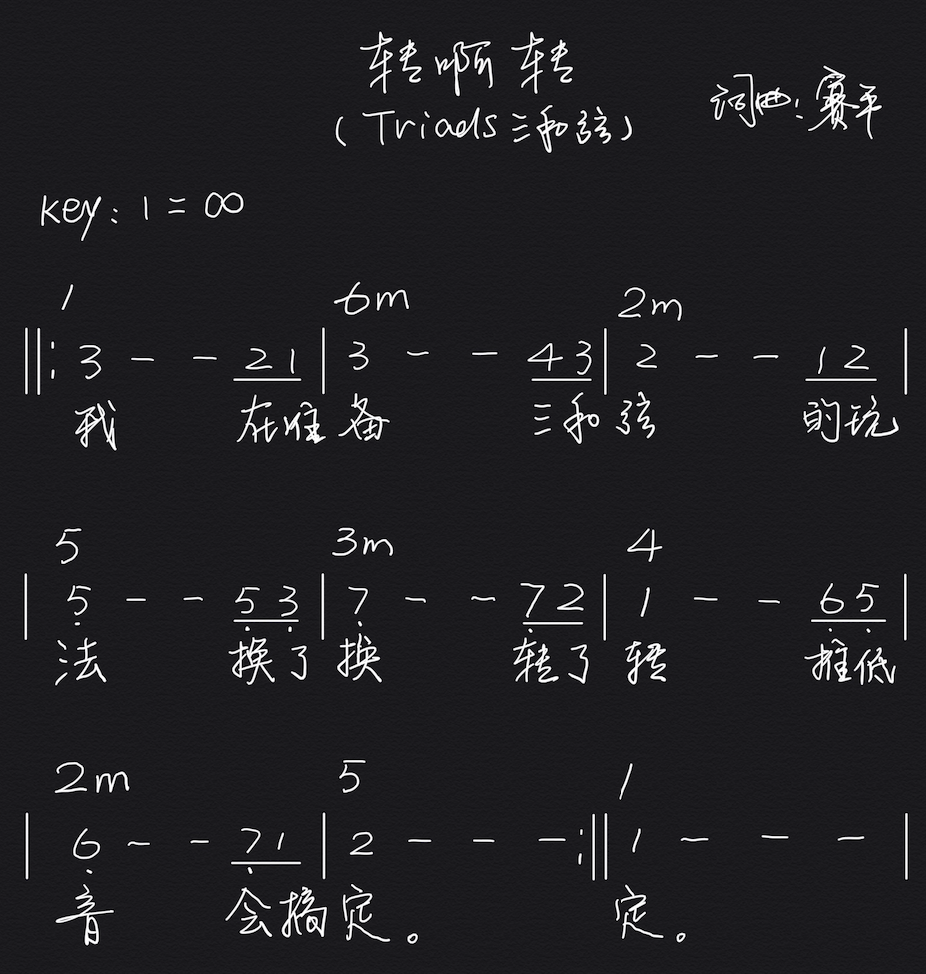 转啊转
(Triads三和弦)
词曲:赛平
key: 1 = ∞
1 6m 2m
‖: 3 - - 21 | 3 - - 43 | 2 - - 12 |
我 在准备 三和弦 的玩
5 3m 4
| 5̣ - - 5̣3̣ | 7̣ - - 7̣2 | 1 - - 6̣5̣ |
法 换了换 转了转 推低
2m 5 1
| 6̣ - - 7̣1 | 2 - - - :‖ 1 - - - |
音 会搞定。 定。